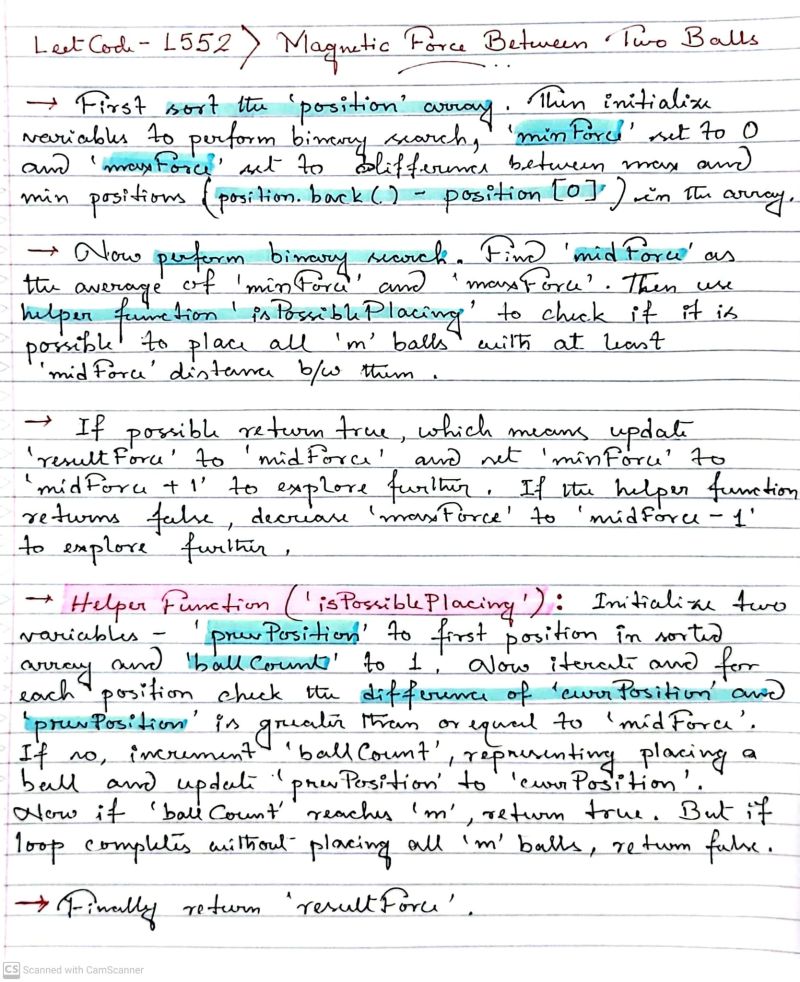 LeetCode - 1552 > Magnetic Force Between Two Balls
→ First sort the 'position' array. Then initialize
variables to perform binary search, 'minForce' set to 0
and 'maxForce' set to difference between max and
min positions (position.back() - position[0]') in the array.
→ Now perform binary search. Find 'midForce' as
the average of 'minForce' and 'maxForce'. Then use
helper function 'isPossiblePlacing' to check if it is
possible to place all 'm' balls with at least
'midForce' distance b/w them.
→ If possible return true, which means update
'resultForce' to 'midForce' and set 'minForce' to
'midForce + 1' to explore further. If the helper function
returns false, decrease 'maxForce' to 'midForce - 1'
to explore further.
→ Helper Function ('isPossiblePlacing'): Initialize two
variables - 'prevPosition' to first position in sorted
array and 'ballCount' to 1. Now iterate and for
each position check the difference of 'currPosition' and
'prevPosition' is greater than or equal to 'midForce'.
If so, increment 'ballCount', representing placing a
ball and update 'prevPosition' to 'currPosition'.
Now if 'ballCount' reaches 'm', return true. But if
loop completes without placing all 'm' balls, return false.
→ Finally return 'resultForce'.
CS Scanned with CamScanner